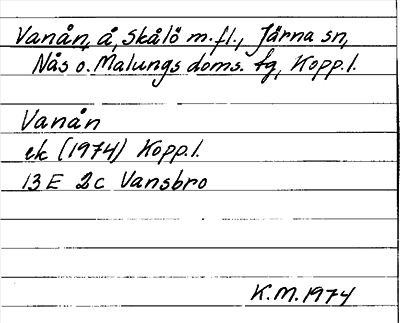 Vanån, å, Skålö m.fl., Järna sn,
Nås o. Malungs doms. fg, Kopp.l.
Vanån
ek (1974) Kopp.l.
13 E 2c Vansbro
K.M. 1974